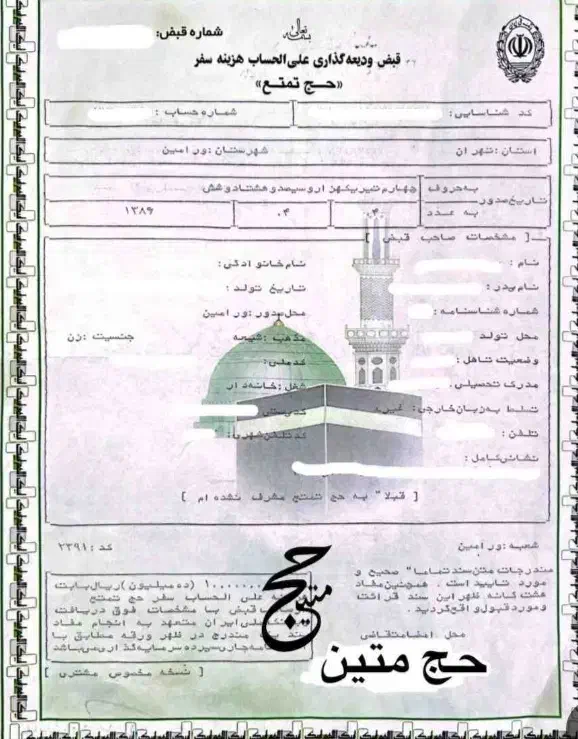 شماره قبض:
بسمه تعالی
قبض ودیعه گذاری علی الحساب هزینه سفر
«حج تمتع»
کد شناسایی: شماره حساب:
استان: تهران شهرستان: ورامین
تاریخ صدور به حروف چهارم تیر یکهزار و سیصد و هشتاد و شش
به عدد ۰۴ ۰۴ ۱۳۸۶
[ مشخصات صاحب قبض ]
نام: نام خانوادگی:
نام پدر: تاریخ تولد:
شماره شناسنامه: محل صدور: ورامین
محل تولد مذهب: شیعه جنسیت: زن
وضعیت تاهل: کد ملی:
مدرک تحصیلی: شغل: خانه دار
تسلط به زبان خارجی: کد پستی
تلفن: کد تلفن شهری:
نشانی کامل:
[ قبلا" به حج تمتع مشرف نشده ام ]
شعبه: ورامین کد: ۲۳۹۱
مندرجات متن سند تماما" صحیح و
مورد تایید است. همچنین مفاد
هشت گانه ظهر این سند قرائت
و مورد قبول واقع گردید.
محل امضا متقاضی
(ده میلیون) ریال بابت
علی الحساب سفر حج تمتع
قبض با مشخصات فوق دریافت
ایران متعهد به انجام مفاد
مندرج در ظهر ورقه مطابق با
سپرده سرمایه گذاری می باشد
[ نسخه مخصوص مشتری ]
حج متین
حج متین